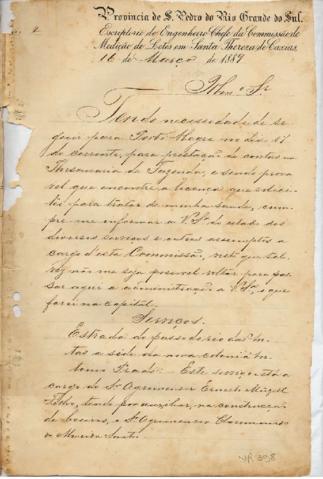 Provincia de S. Pedro do Rio Grande do Sul.
Escriptorio do Engenheiro Chefe da Commissão de
Medição de Lotes em Santa Thereza de Caxias,
16 de Março de 1889
Illmo Sr
Tendo necessidade de se
guir para Porto Alegre no dia 17
do corrente, para prestação de contas na
Thesouraria de Fazenda, e sendo prova
vel que encontre a licença que solici
tei para tratar de minha saude, cum
pre-me informar a V.Sª. do estado dos
diversos serviços e outros assumptos a
cargo d'esta Commissão, visto que tal
vez não me seja possivel voltar para pas
sar aqui a administração a V.Sª, o que
farei na capital.
Serviços.
Estrada do
á séde da nova colonia An
tonio Prado - Este serviço está a
cargo do Sr Agrimensor Ernesto
Filho, tendo por auxiliar, na construcção
de boeiros, o Sr Agrimensor
de Almeida